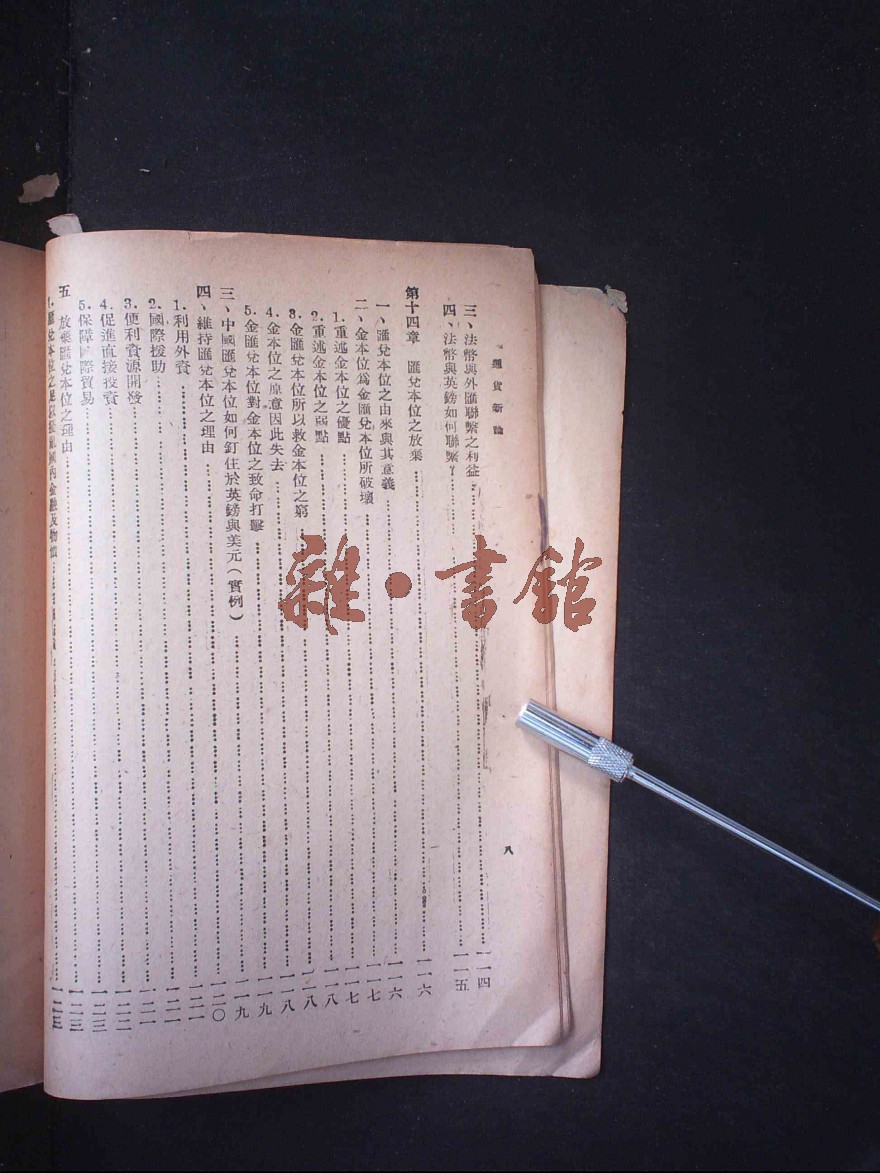 通貨新論
三、法幣與外匯聯繫之利益……一一四
四、法幣與英鎊如何聯繫？……一一五
第十四章 匯兌本位之放棄……一一六
一、匯兌本位之由來與其意義……一一六
二、金本位爲金匯兌本位所破壞……一一七
1.重述金本位之優點……一一七
2.重述金本位之弱點……一一八
3.金匯兌本位所以救金本位之窮……一一八
4.金本位之原意因此失去……一一八
5.金匯兌本位對金本位之致命打擊……一一九
三、中國匯兌本位如何釘住於英鎊與美元(實例)……一一九
四、維持匯兌本位之理由……一二〇
1.利用外資……一二一
2.國際援助……一二一
3.便利資源開發……一二一
4.促進直接投資……一二二
5.保障國際貿易……一二二
五 放棄匯兌本位之理由……一二三
匯兌本位之足以擾亂國內金融及物價……一二三
八
雜·書館